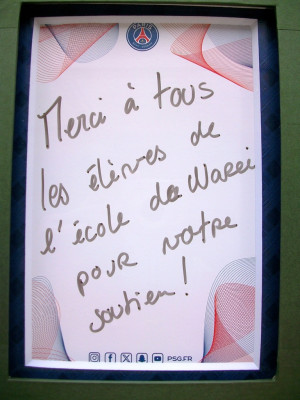 PARIS
Merci à tous
les élèves de
l'école de Warei
pour votre
soutien !
PSG.FR